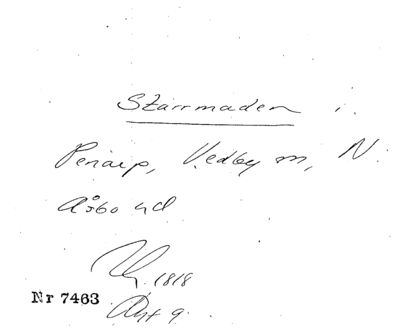 Starrmaden i
Penarp, Vedby m, N.
Åsbo hd
1818
Nr 7463
Akt 9.